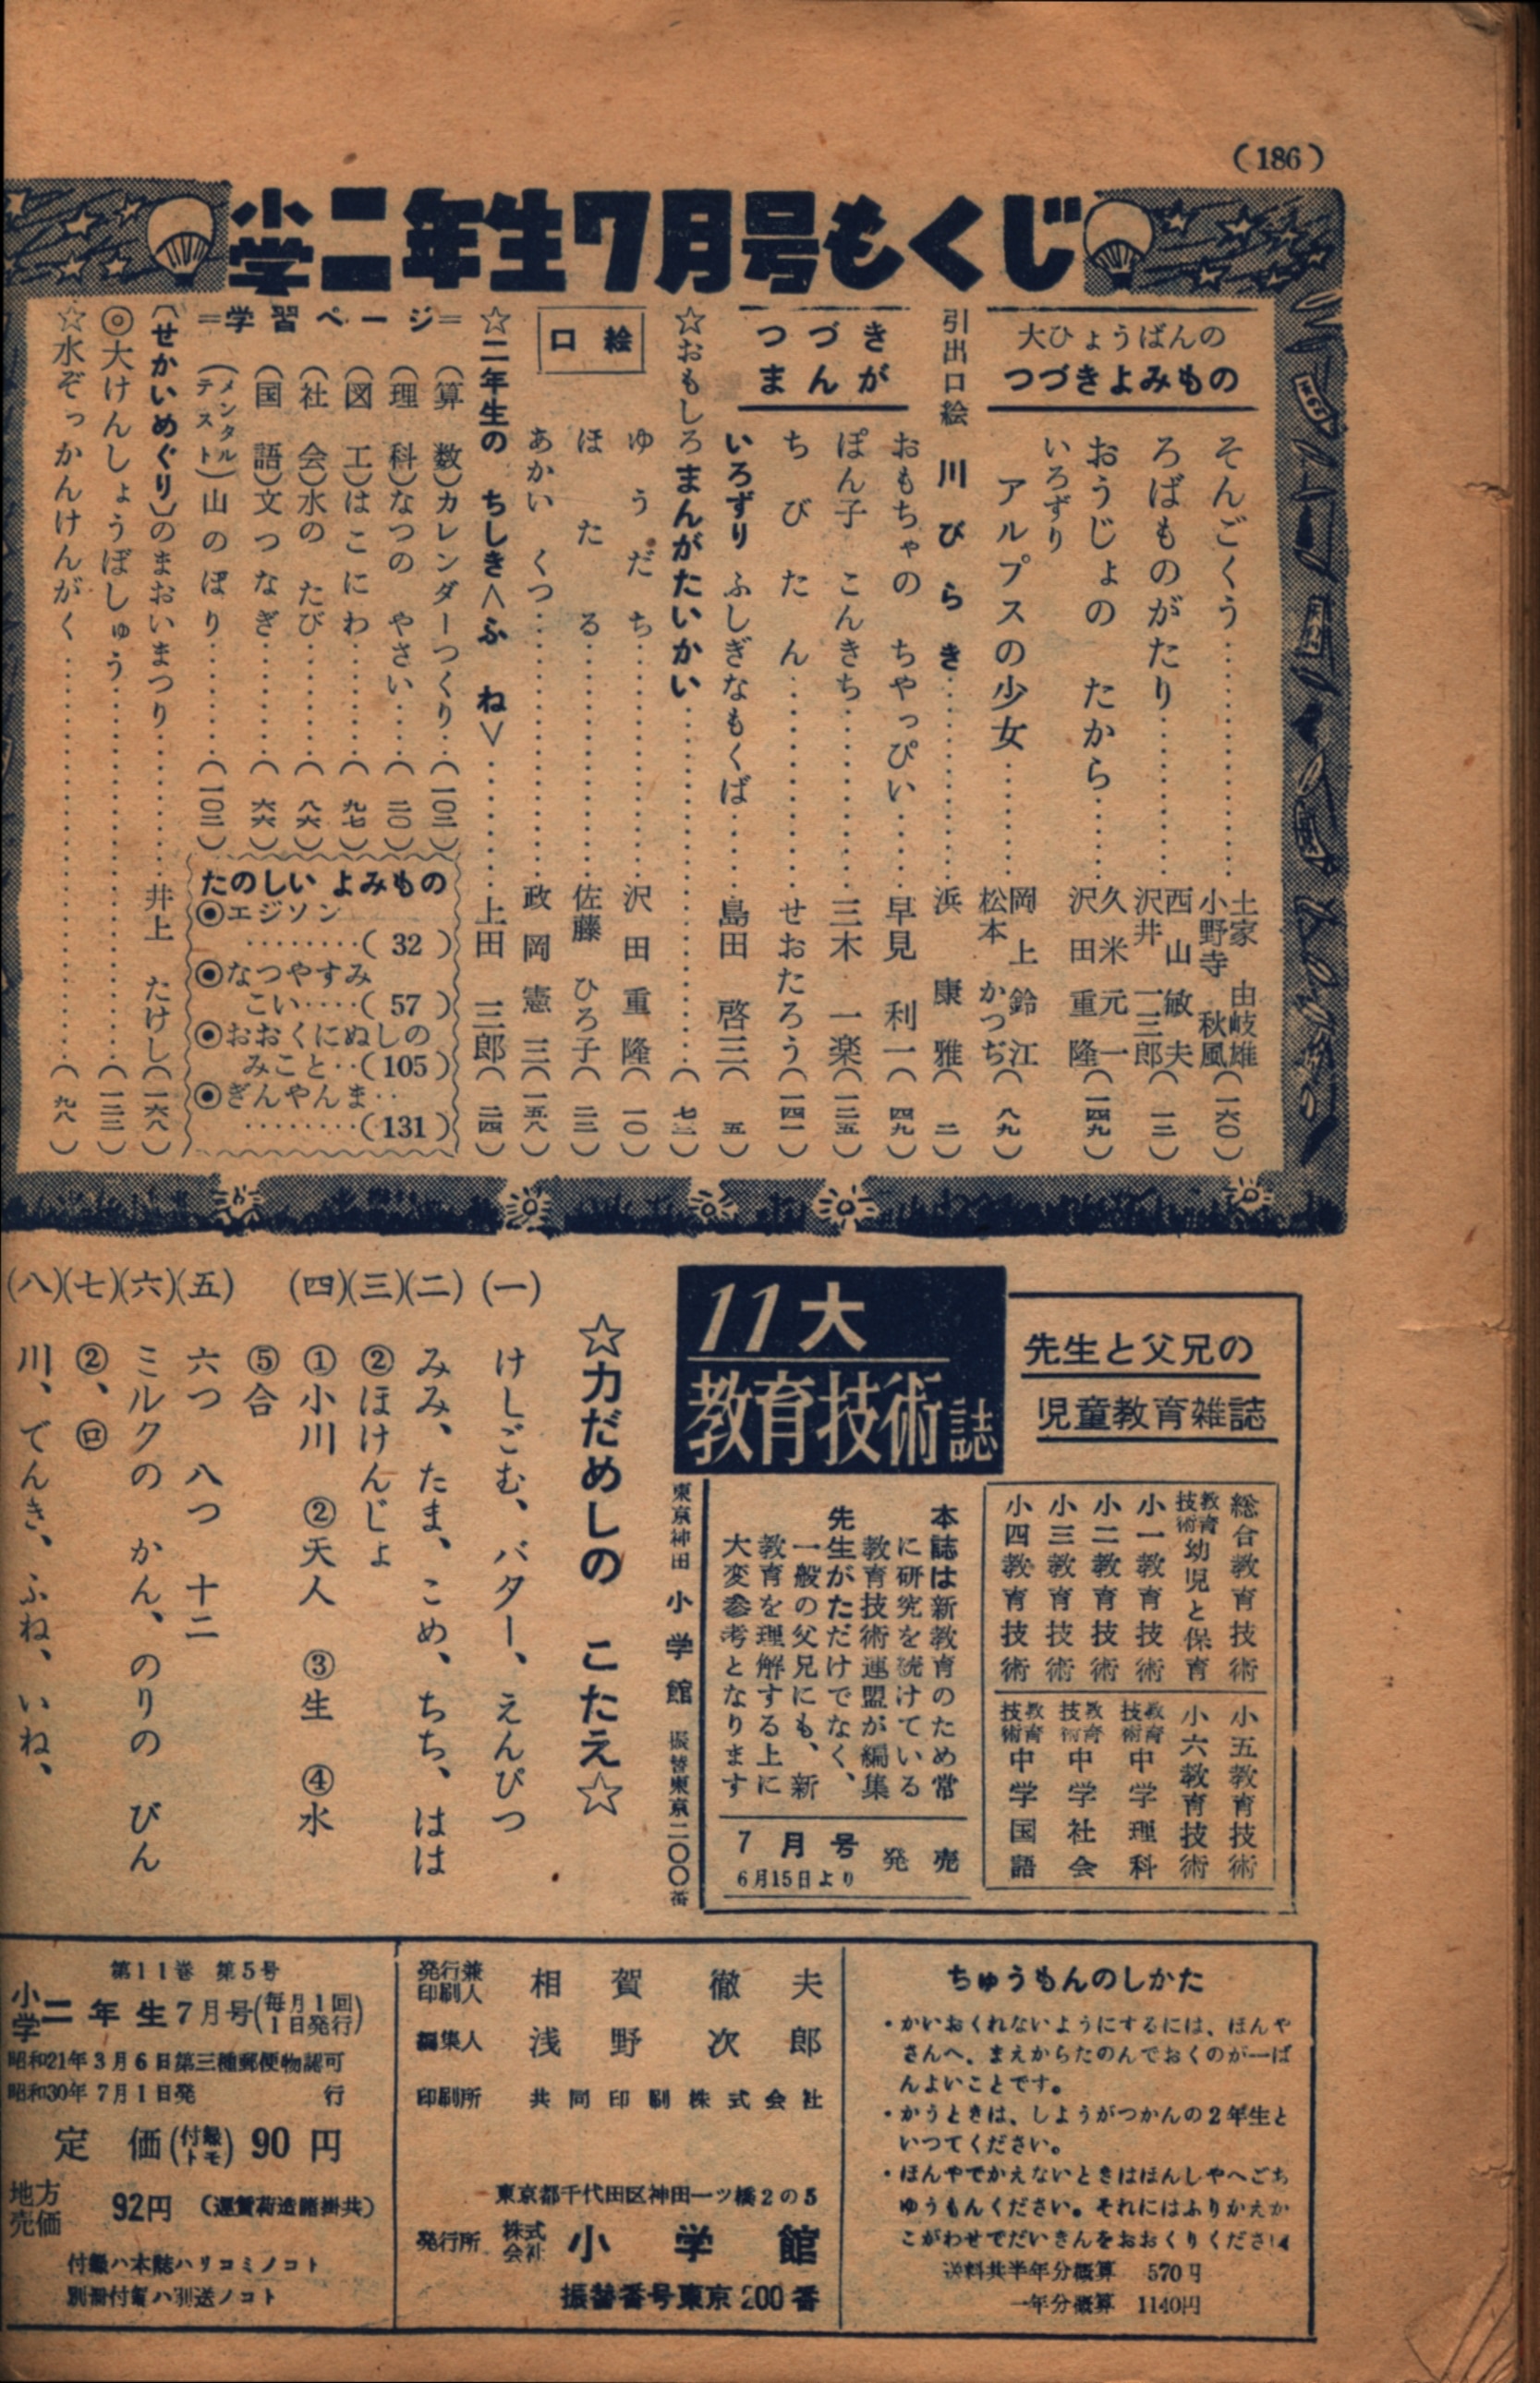 (186)
小学二年生7月号もくじ
大ひょうばんの
つづきよみもの
そんごくう……………土家 由岐雄 小野寺 秋風(一六〇)
ろばものがたり…………西山 敏夫 沢井 一三郎(一二)
おうじょの たから……久米 元一 沢田 重隆(一四九)
いろずり
アルプスの少女………岡上 鈴江 松本 かつぢ(八九)
引出口絵 川びらき……………浜 康雅(二)
つづき
まんが
おもちゃの ちやっぴい……早見 利一(四九)
ぽん子 こんきち…………三木 一楽(一二五)
ちびたん……………せおたろう(一四一)
いろずり ふしぎなもくば……島田 啓三(五)
☆おもしろまんがたいかい……………(七三)
口絵
ゆうだち……………沢田 重隆(一〇)
ほたる……………佐藤 ひろ子(二二)
あかい くつ……………政岡 憲三(一五八)
☆二年生の ちしき<ふね>………上田 三郎(二四)
=学習ページ=
(算数)カレンダーつくり…(一〇三)
(理科)なつの やさい……(二〇)
(図工)はこにわ…………(九七)
(社会)水の たび…………(八六)
(国語)文つなぎ…………(六六)
(メンタルテスト)山のぼり…………(一〇二)
たのしい よみもの
◉エジソン
………(32)
◉なつやすみ
こい‥‥(57)
◉おおくにぬしの
みこと‥(105)
◉ぎんやんま‥
………(131)
〔せかいめぐり〕のまおいまつり…………井上 たけし(一六八)
◎大けんしょうぼしゅう……………(一三二)
☆水ぞっかんけんがく……………(九八)
先生と父兄の
児童教育雑誌
11大
教育技術誌
総合教育技術
教育技術幼児と保育
小一教育技術
小二教育技術
小三教育技術
小四教育技術
小五教育技術
小六教育技術
教育技術中学理科
教育技術中学社会
教育技術中学国語
本誌は新教育のため常
に研究を続けている
教育技術連盟が編集
先生がただけでなく、
一般の父兄にも、新
教育を理解する上に
大変参考となります
7月号 発売
6月15日より
東京神田 小学館 振替東京二〇〇番
☆力だめしの こたえ☆
(一) けしごむ、バター、えんぴつ
(二) みみ、たま、こめ、ちち、はは
(三) ②ほけんじょ
(四) ①小川 ②天人 ③生 ④水
⑤合
(五) 六つ 八つ 十二
(六) ミルクの かん、のりの びん
(七) ②、㋺
(八) 川、でんき、ふね、いね、
ちゅうもんのしかた
・かいおくれないようにするには、ほんや
さんへ、まえからたのんでおくのが一ば
んよいことです。
・かうときは、しようがつかんの2年生と
いつてください。
・ほんやでかえないときはほんしやへごち
ゆうもんください。それにはふりかえか
こがわせでだいきんをおおくりください
送料共半年分概算 570円
一年分概算 1140円
発行兼印刷人 相賀徹夫
編集人 浅野次郎
印刷所 共同印刷株式会社
東京都千代田区神田一ツ橋2の5
発行所 株式会社 小学館
振替番号東京200番
第11巻 第5号
小学二年生7月号(毎月1回1日発行)
昭和21年3月6日第三種郵便物認可
昭和30年7月1日発行
定価(付録トモ)90円
地方売価 92円 (運賃荷造諸掛共)
付録ハ本誌ハリコミノコト
別冊付録ハ別送ノコト